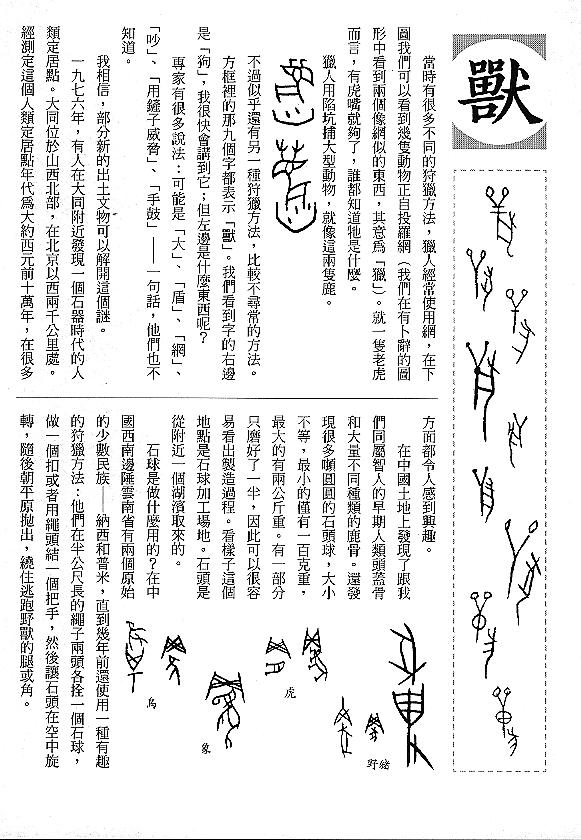 獸
當時有很多不同的狩獵方法，獵人經常使用網，在下
圖我們可以看到幾隻動物正自投羅網（我們在有卜辭的圖
形中看到兩個像網似的東西，其意爲「獵」）。就一隻老虎
而言，有虎嘴就夠了，誰都知道牠是什麼。
獵人用陷坑捕大型動物，就像這兩隻鹿。
不過似乎還有另一種狩獵方法，比較不尋常的方法。
方框裡的那九個字都表示「獸」。我們看到字的右邊
是「狗」，我很快會講到它；但左邊是什麼東西呢？
專家有很多說法：可能是「大」、「盾」、「網」、
「吵」、「用鏟子威脅」、「手鼓」——一句話，他們也不
知道。
我相信，部分新的出土文物可以解開這個謎。
一九七六年，有人在大同附近發現一個石器時代的人
類定居點。大同位於山西北部，在北京以西兩千公里處。
經測定這個人類定居點年代爲大約西元前十萬年，在很多
方面都令人感到興趣。
在中國土地上發現了跟我
們同屬智人的早期人類頭蓋骨
和大量不同種類的鹿骨。還發
現很多顆圓圓的石頭球，大小
不等，最小的僅有一百克重，
最大的有兩公斤重。有一部分
只磨好了一半，因此可以很容
易看出製造過程。看樣子這個
地點是石球加工場地。石頭是
從附近一個湖濱取來的。
石球是做什麼用的？在中
國西南邊陲雲南省有兩個原始
的少數民族——納西和普米，直到幾年前還使用一種有趣
的狩獵方法：他們在半公尺長的繩子兩頭各拴一個石球，
做一個扣或者用繩頭結一個把手，然後讓石頭在空中旋
轉，隨後朝平原拋出，繞住逃跑野獸的腿或角。
野豬
虎
象
鳥